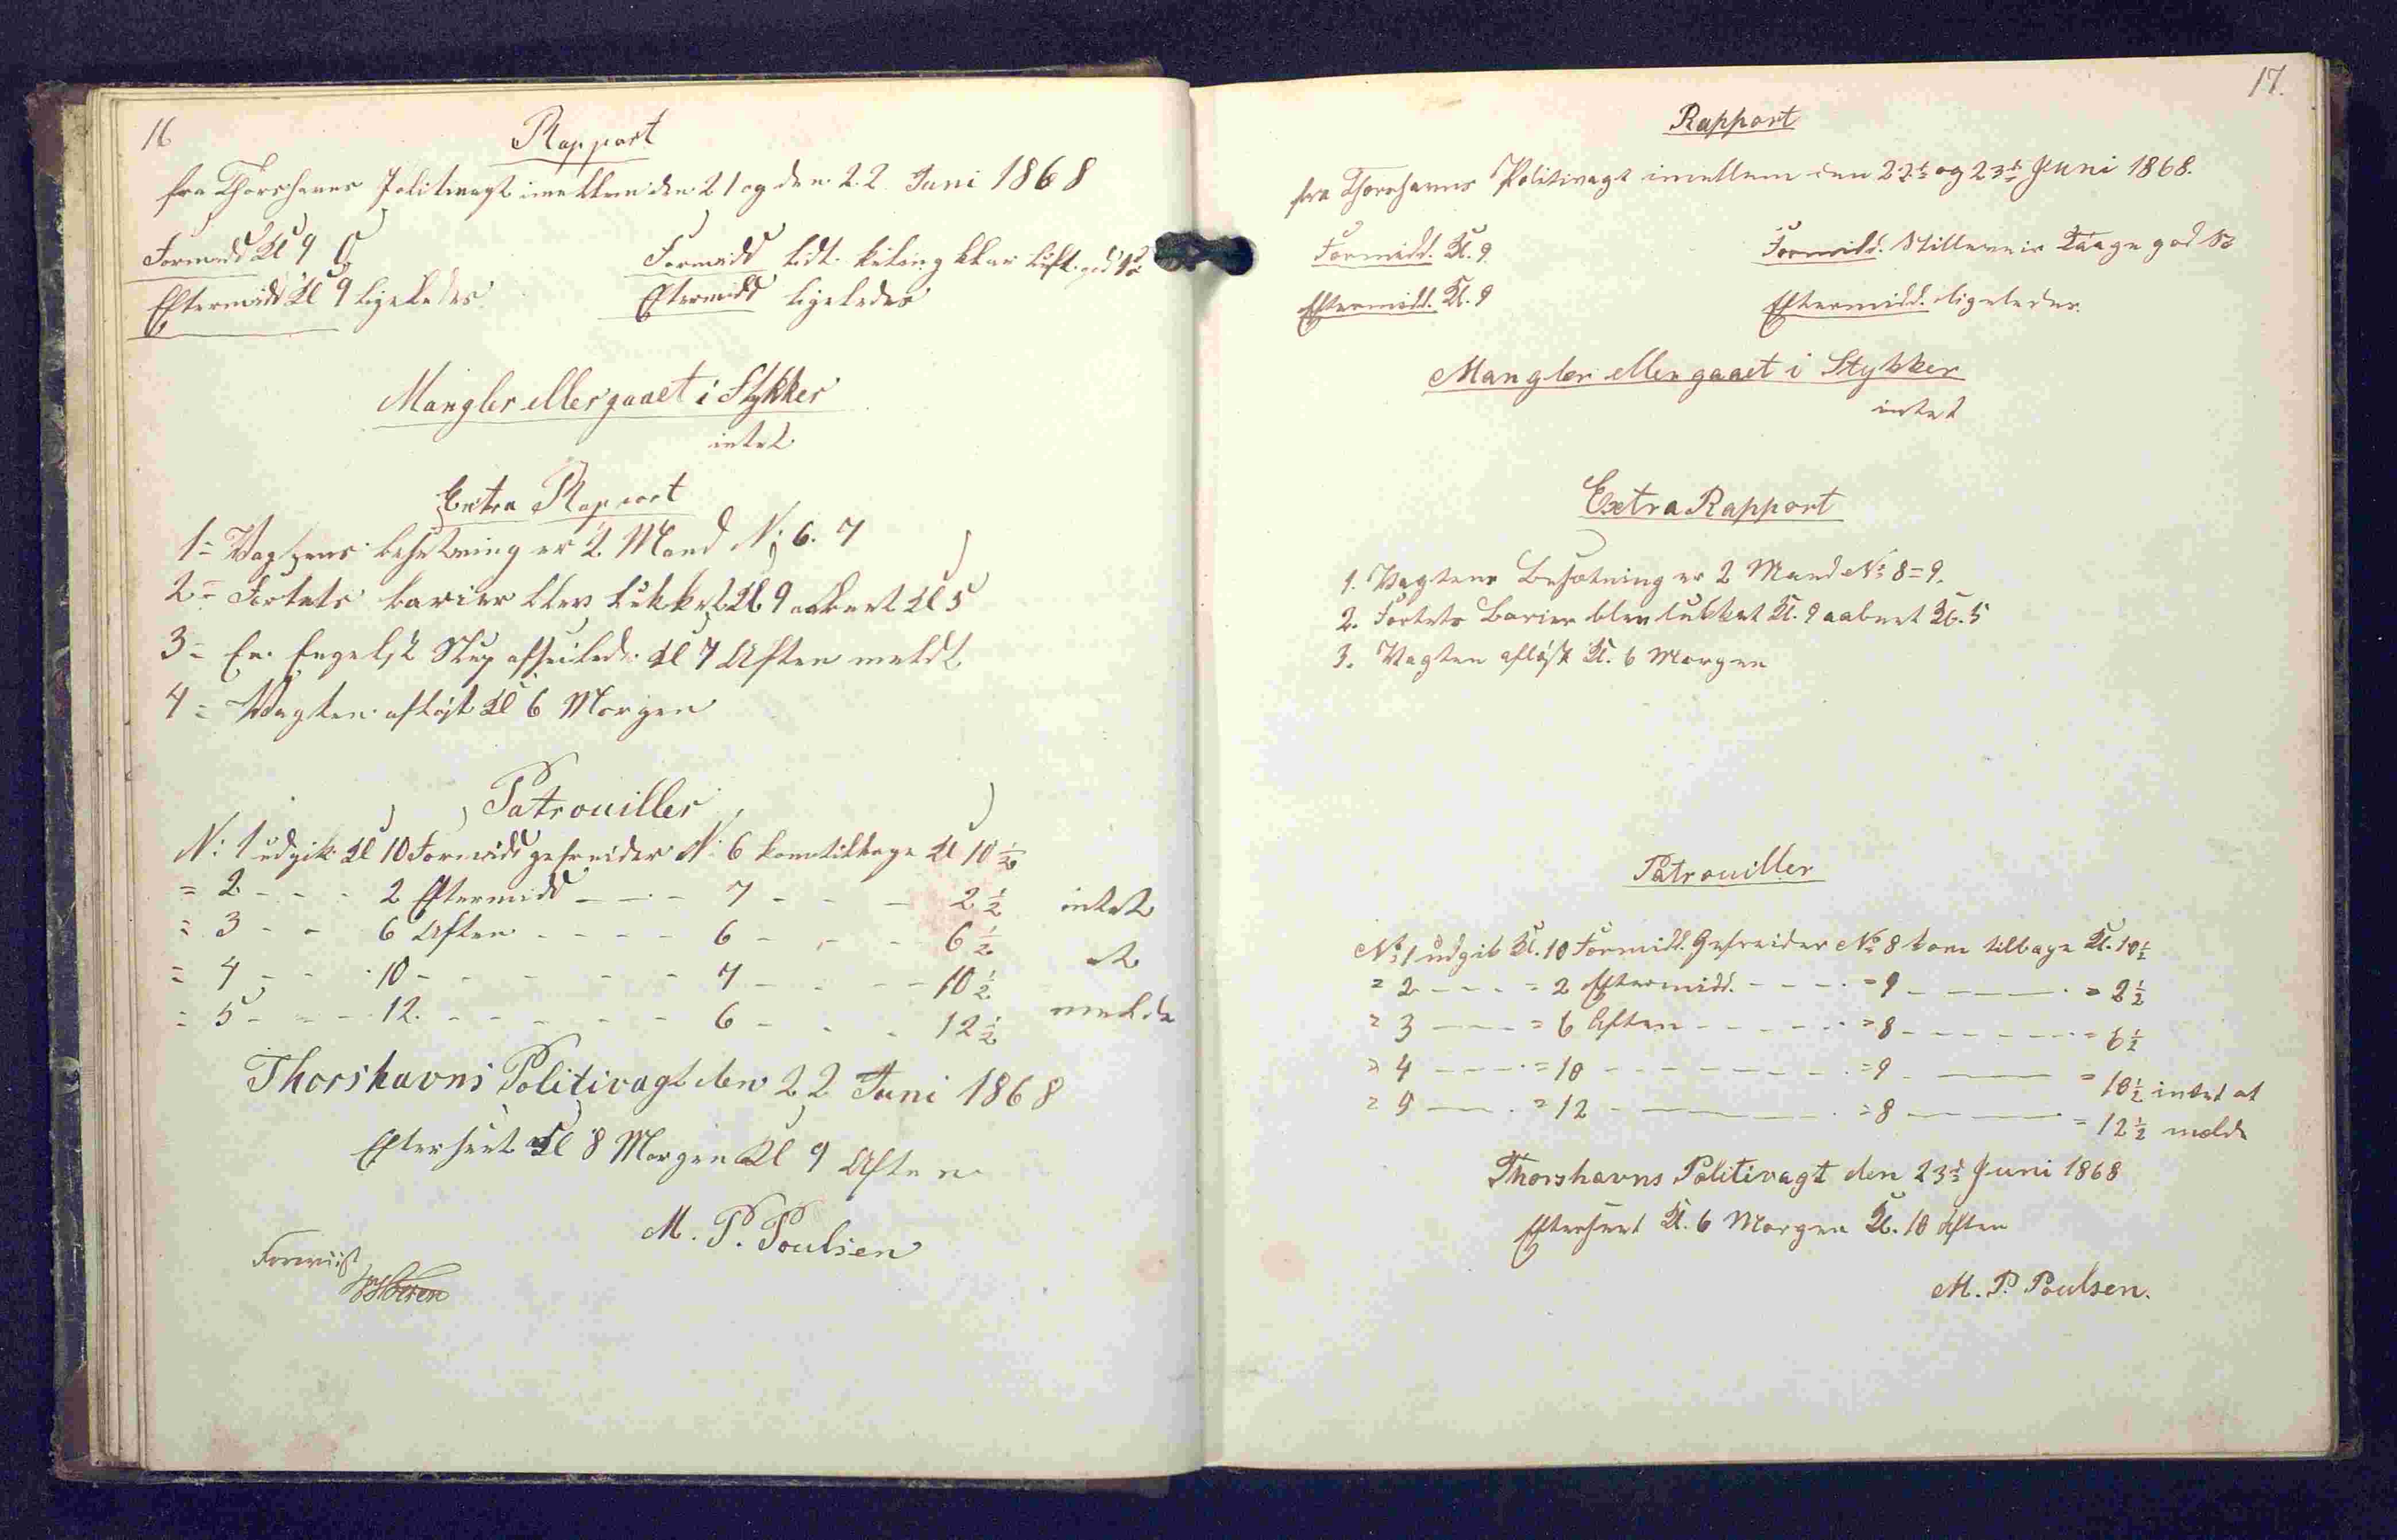 16
Rapport
fra Thorshavns Politivagt imellem den 21 og den 22 Juni 1868
Formidd Kl 9
Formidd lidt kuling klar luft god Sø
Eftermidd Kl 9 ligeledes
Eftermidd ligeledes
Mangler eller gaaet i Stykker
intet
Extra Rapport
1= Vagtens besetning er 2 Mand N: 6. 7
2= Fortets barier blev lukket Kl 9 aabnet Kl 5
3= En Engelsk Slup afseilede Kl 7 Aften meldt
4= Vagten afløst Kl 6 Morgen
Patrouiller
N: 1 udgik Kl 10 Formidd gefreider N: 6 kom tilbage Kl 10 1/2
= 2 - - - 2 Eftermidd - - - 7 - - - 2 1/2 intet
= 3 - - 6 Aften - - - - 6 - - - 6 1/2 at
= 4 - - 10 - - - - - 7 - - - 10 1/2
= 5 - - - 12 - - - - - 6 - - - 12 1/2 melde
Thorshavns Politivagt den 22 Juni 1868
Efterseet Kl 8 Morgen Kl 9 Aften
M. P. Poulsen
Foreviist
17.
Rapport
fra Thorshavns Politivagt imellem den 22d og 23d Juni 1868.
Formidd. Kl. 9.
Formidd. Stilleveir Taage god Sø
Eftermidd. Kl. 9
Eftermidd. ligeledes.
Mangler eller gaaet i Stykker
intet
Extra Rapport
1. Vagtens Besætning er 2 Mand No 8 = 9.
2. Fortets Barier blev lukket Kl. 9 aabnet Kl. 5
3. Vagten afløst Kl. 6 Morgen
Patrouiller
No 1 udgik Kl. 10 Formidd. Gefreider No 8 kom tilbage Kl. 10 1/2
= 2 - - - - = 2 Eftermidd. - - - - = 9 - - - - = 2 1/2
= 3 - - - = 6 Aften - - - - - = 8 - - - - - = 6 1/2
= 4 - - - = 10 - - - - - - - = 9 - - - - = 10 1/2 intet at
= 5 - - = 12 - - - - - = 8 - - - - = 12 1/2 melde
Thorshavns Politivagt den 23d Juni 1868
Efterseet Kl. 6 Morgen Kl. 10 Aften
M. P. Poulsen.